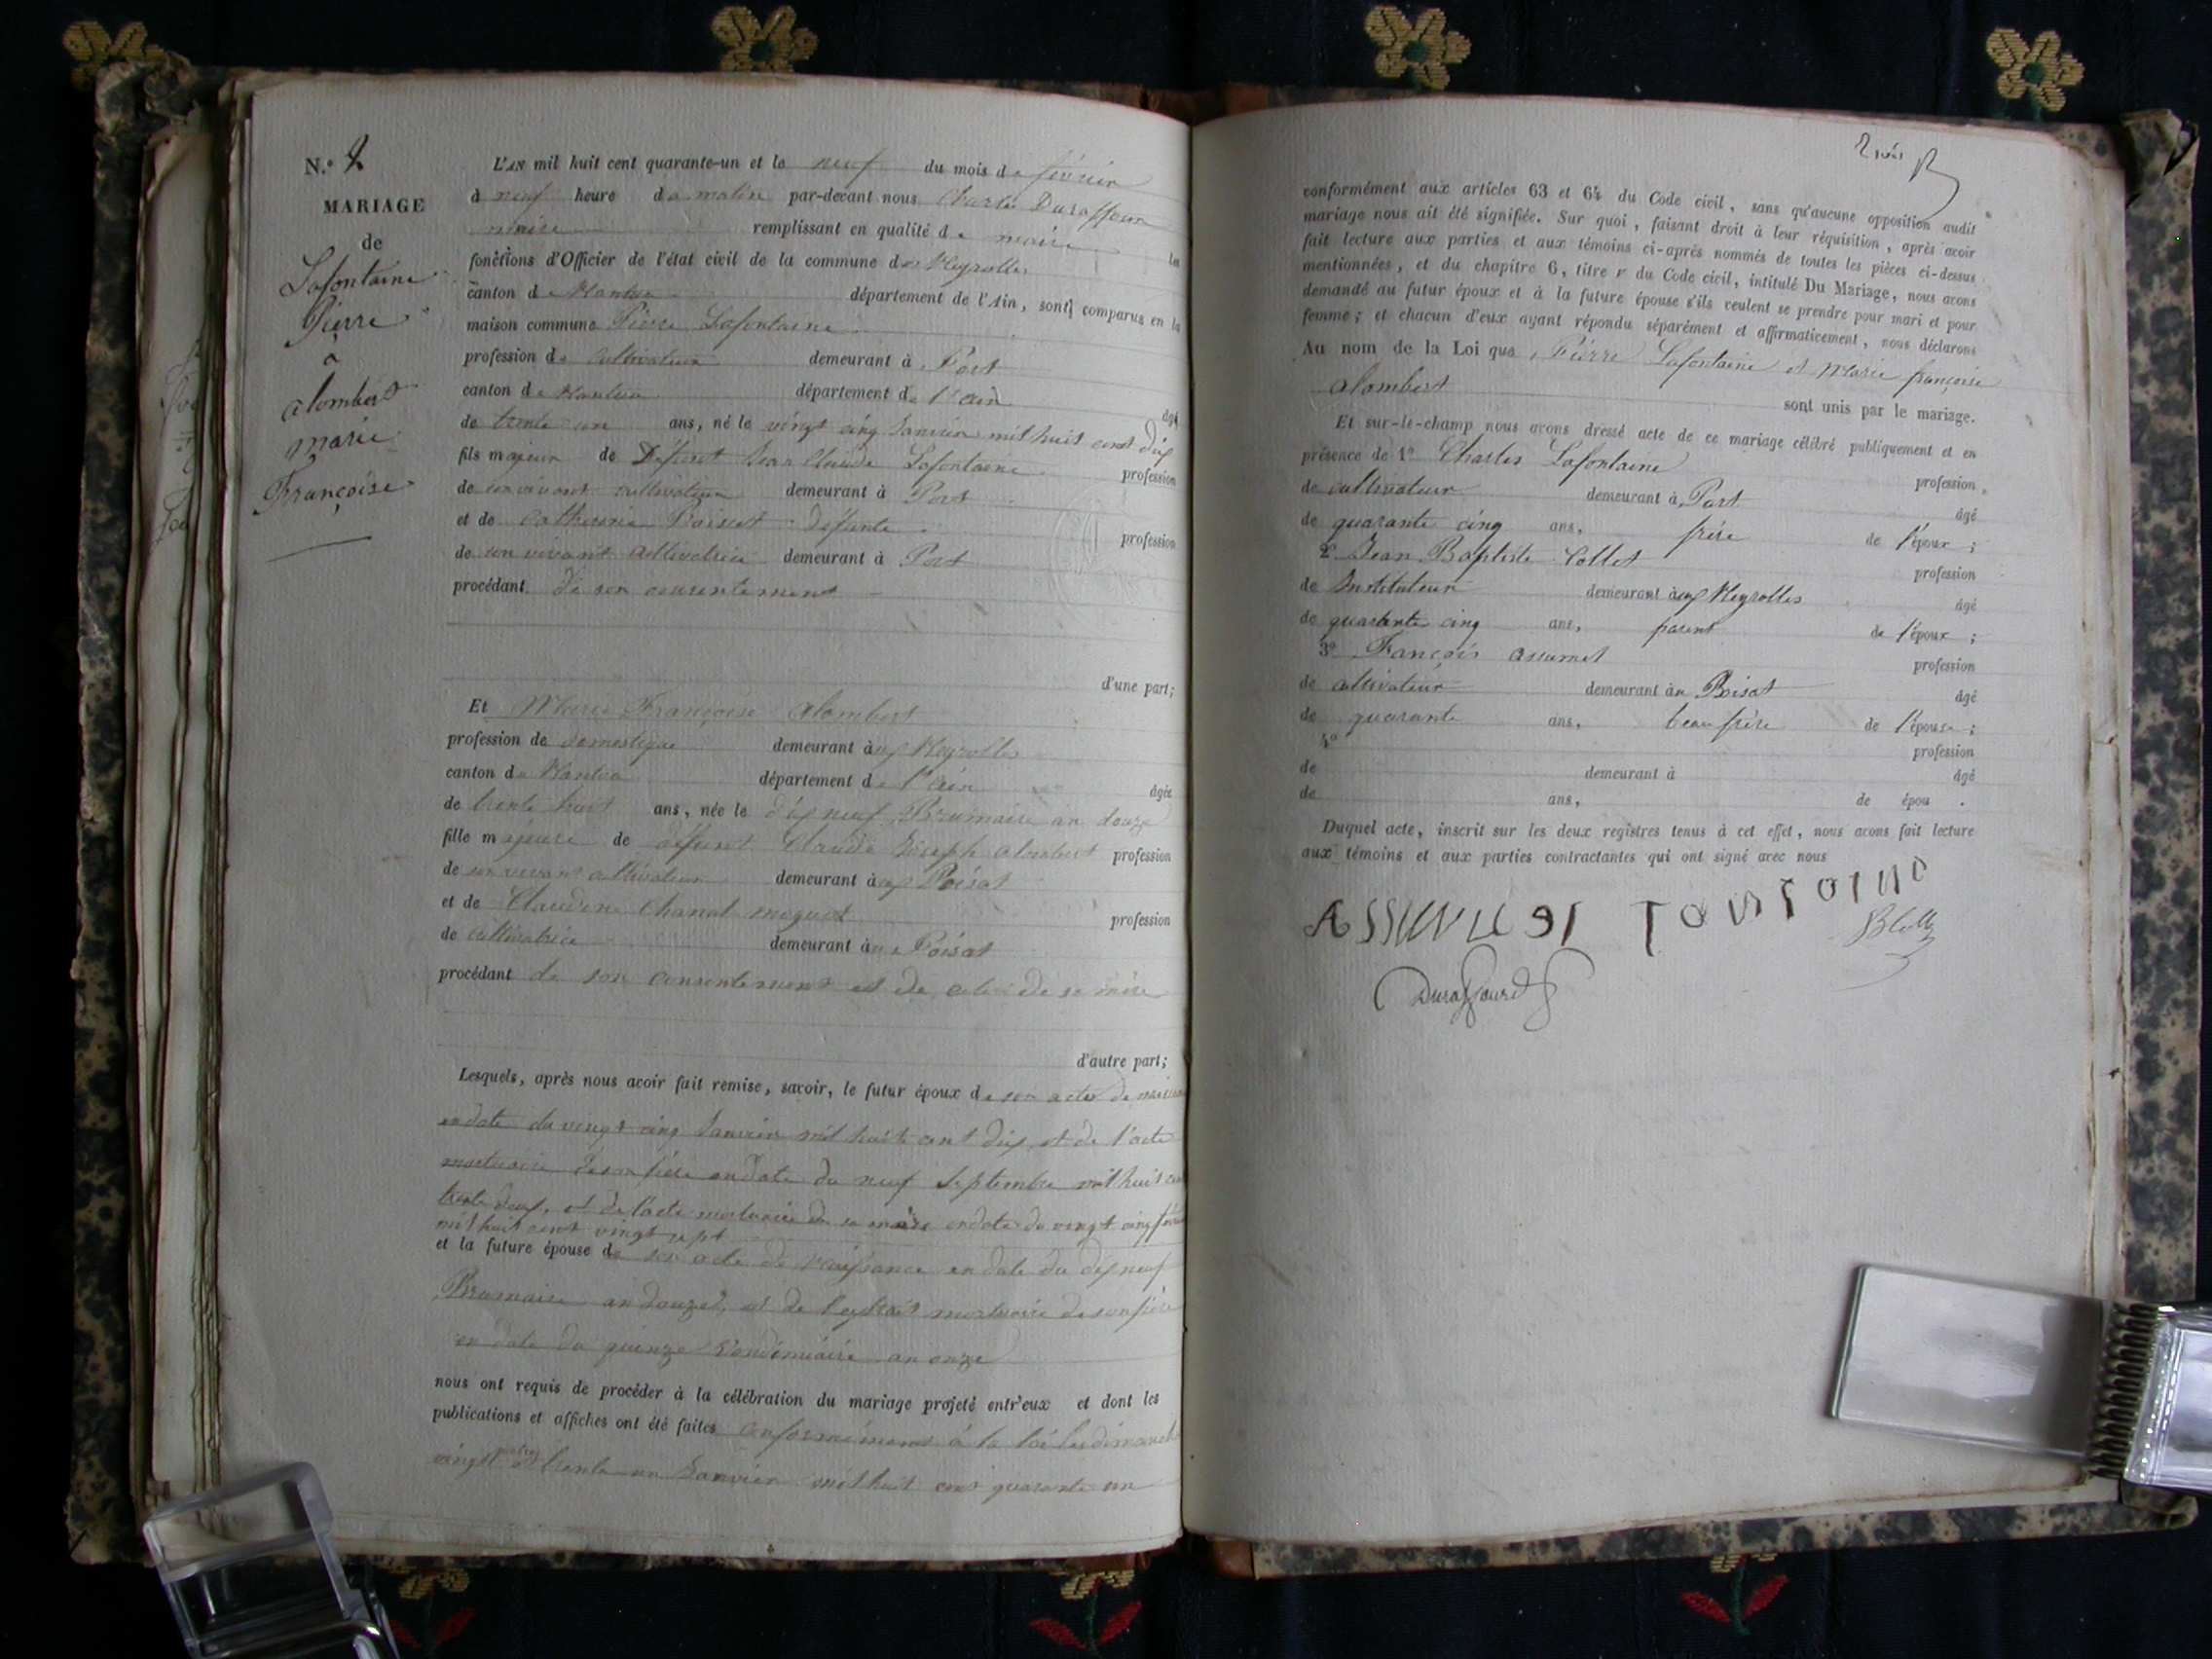 N.º 2
MARIAGE
de
Lafontaine
Pierre
à
alombert
marie
Françoise
L'AN mil huit cent quarante-un et le neuf du mois de février
à neuf heure du matin par-devant nous Charles Duraffour
maire remplissant en qualité de maire les
fonctions d'Officier de l'état civil de la commune des Neyrolles
canton de Nantua département de l'Ain, sont comparus en la
maison commune Pierre Lafontaine
profession de cultivateur demeurant à Port
canton de Nantua département de l'ain âgé
de trente un ans, né le vingt cinq Janvier mil huit cent dix
fils majeur de Défunt Jean Claude Lafontaine profession
de son vivant cultivateur demeurant à Port
et de Catherine défunte profession
de son vivant cultivatrice demeurant à Port
procédant de son consentement
d'une part;
Et Marie Françoise alombert
profession de domestique demeurant aux Neyrolles
canton de Nantua département de l'ain âgée
de trente huit ans, née le dix neuf Brumaire an douze
fille majeure de défunt Claude Joseph alombert profession
de son vivant cultivateur demeurant à Poisat
et de Claudine Chanal profession
de cultivatrice demeurant au Poisat
procédant de son consentement et de celui de sa mère
d'autre part;
Lesquels, après nous avoir fait remise, savoir, le futur époux de son acte de
en date du vingt cinq Janvier mil huit cent dix, et de l'acte
mortuaire de son père en date du neuf Septembre mil huit cent
trente deux, et de l'acte mortuaire de sa mère en date du vingt cinq
mil huit cent vingt sept
et la future épouse de son acte de naissance en date du dix neuf
Brumaire an douze, et de l'extrait mortuaire de son père
en date du quinze Vendémiaire an onze
nous ont requis de procéder à la célébration du mariage projeté entr'eux et dont les
publications et affiches ont été faites conformément à la loi les dimanche
vingt quatre et trente un Janvier mil huit cent quarante un
conformément aux articles 63 et 64 du Code civil, sans qu'aucune opposition audit
mariage nous ait été signifiée. Sur quoi, faisant droit à leur réquisition, après avoir
fait lecture aux parties et aux témoins ci-après nommés de toutes les pièces ci-dessus
mentionnées, et du chapitre 6, titre v du Code civil, intitulé Du Mariage, nous avons
demandé au futur époux et à la future épouse s'ils veulent se prendre pour mari et pour
femme; et chacun d'eux ayant répondu séparément et affirmativement, nous déclarons
Au nom de la Loi que Pierre Lafontaine et Marie françoise
alombert sont unis par le mariage.
Et sur-le-champ nous avons dressé acte de ce mariage célébré publiquement et en
présence de 1º Charles Lafontaine profession
de cultivateur demeurant à Port âgé
de quarante cinq ans, frère de l'époux;
2º Jean Baptiste Collet profession
de Instituteur demeurant aux Neyrolles âgé
de quarante cinq ans, parent de l'époux;
3º François assumel profession
de cultivateur demeurant au Poisat âgé
de quarante ans, beau frère de l'épouse;
4º profession
de demeurant à âgé
de ans, de épou .
Duquel acte, inscrit sur les deux registres tenus à cet effet, nous avons fait lecture
aux témoins et aux parties contractantes qui ont signé avec nous
Duraffourd